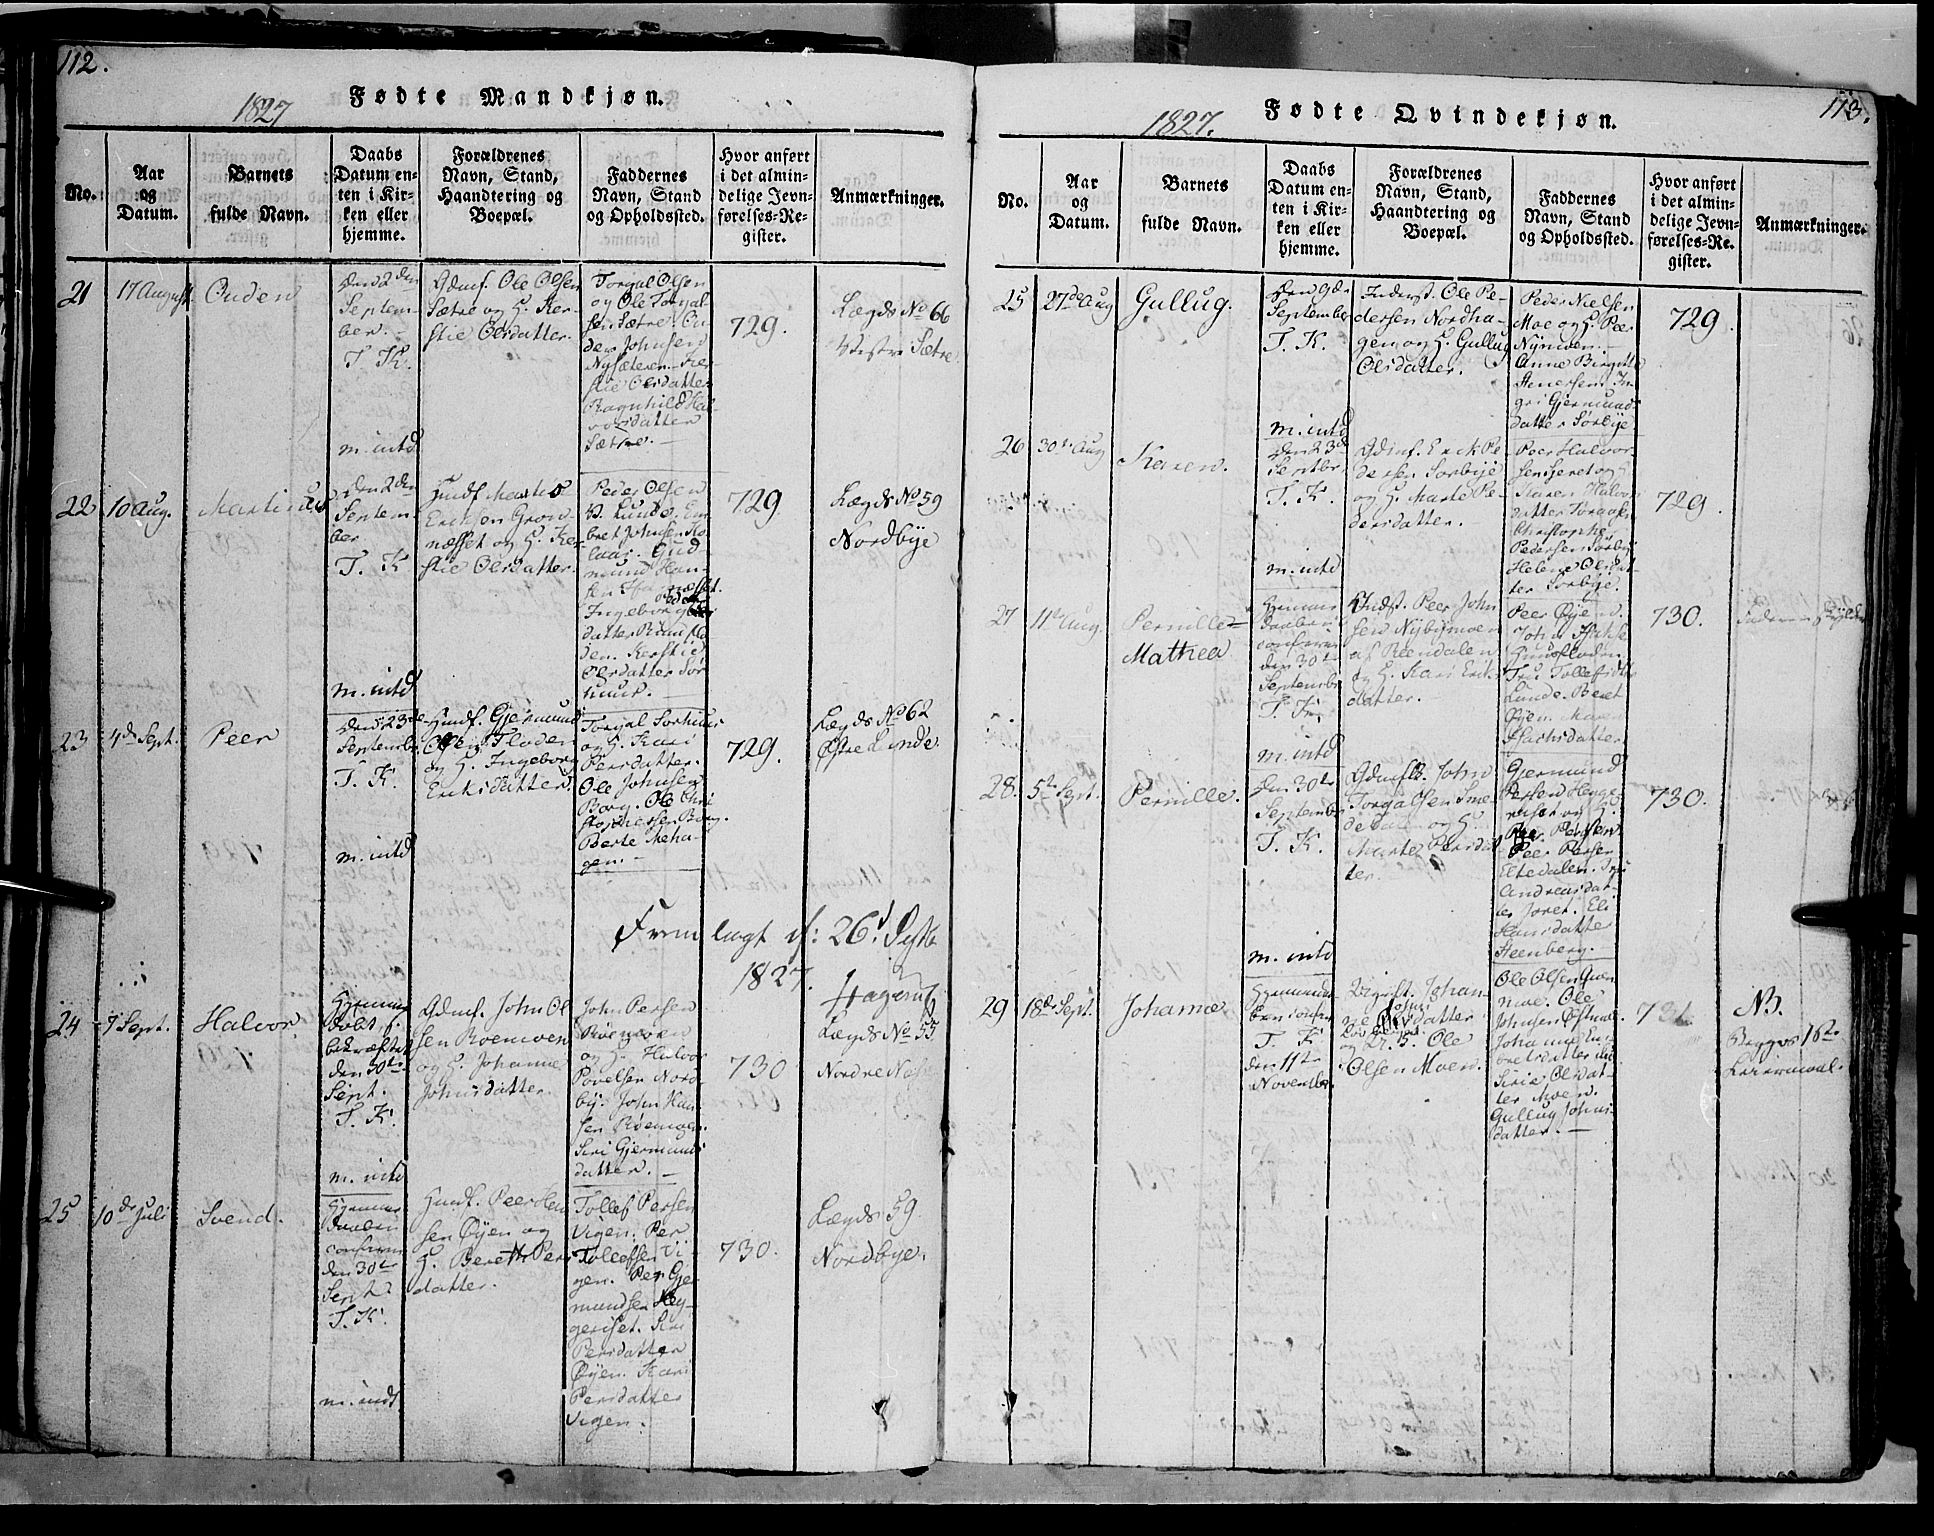 112.
1827
Fødte Mandkjøn.
No.
Aar
og
Datum.
Barnets
fulde Navn.
Daabs
Datum en-
ten i Kir-
ken eller
hjemme.
Forældrenes
Navn, Stand,
Haandtering og
Boepæl.
Faddernes
Navn, Stand
og Opholdssted.
Hvor anført
i det almin-
delige Jevn-
førelses-Re-
gister.
Anmærkninger.
21
17 August
Ouden
Den 2den
Septem-
ber.
T. K.
m. intd
Gdmf. Ole Olsen
Sætre og H. Ker-
stie Olsdatter.
Torgal Olsen
og Ole Torgal
sen Sætre. Ou-
den Johnsen
Nysæteren. Ker-
stie Olsdatter
Ragnhild Hal-
vorsdatter
Sætre.
729.
Lægds No 66
Vestre Sætre
22
10 Aug.
Martinus
Den 2den
Septem-
ber
T. K
m. intd
Husf. Martin
Eriksen Gron-
næsset og H. Ker-
stie Olsdatter.
Peder Olsen
Ø. Lunde. Em-
bret Johnsen
mund Han-
sen
Ingeborg
datter
den. Kerstie
Olsdatter Sør
huus.
729
Lægds No 59
Nordbye
23
4de Sept.
Peer
Den 23de
Septembr
T. K.
m. intd
Husf. Gjermund
Olsen Floden
og H. Ingeborg
Eriksdatter.
Torgal Sorhuus
og H. Kari
Persdatter.
Ole Johnsen
Borg. Ole Chri
stophersen Borg.
Berte Meha-
gen.
729.
Lægds No 62
Østre Lunde.
Fremlagt d: 26d Septb
1827.
Hagerup
24
7 Sept.
Halvor
Hjemme
døbt
bekræftet
den 30te
Sept.
T. K.
m. intd
Gdmf. John Ol
sen Roemoen
og H. Johanne
Johnsdatter.
John Persen
Roemoen
og H. Halvor
Povelsen Nord-
by. John Han-
sen Roemoen
Siri Gjermunds
datter.
730
Lægds No 55
Nordre
25
10de Juli
Svend.
Hjemme
daaben
confirm
den 30te
Sept
T. K.
m. intd
Husf. Peer
sen Øyen og
H. Berette Pers
datter.
Tollef Persen
Vigen. Per
Tollefsen Vi-
gen. Per Gjer
mundsen Heg-
geriset. Siri
Persdatter
Øyen. Kari
Persdatter
Vigen.
730.
Lægds 59
Nordbye.
113.
1827.
Fødte Qvindekjøn.
No.
Aar
og
Datum.
Barnets
fulde Navn.
Daabs
Datum en-
ten i Kir-
ken eller
hjemme.
Forældrenes
Navn, Stand,
Haandtering og
Boepæl.
Faddernes
Navn, Stand
og Opholdssted.
Hvor anført
i det almin-
delige Jevn-
førelses-Re-
gister.
Anmærkninger.
25
27de Aug
Gullug.
Den 9de
September
T. K.
m. intd
Inderst. Ole Pe-
dersen Nordha-
gen og H. Gullug
Olsdatter.
Peder Nielsen
Moe og H. Peer
Nymoen.
Anne Birgitte
Stenersen. In-
gri Gjermunds
datter Sørbye
729.
26
30te Aug
Karen.
Den 23de
Septbr.
T. K.
m. intd
Gdmf. Erik Pe-
dersen Sorbye
og H. Marte Pe-
dersdatter.
Peer Halvor-
sen Joret og H.
Karen Halvors
datter
Christophe
Pedersen Sørby
Helene Olsdat-
ter Sorbye.
729.
27
11te Aug.
Pernille
Mathea
Hjemme
daaben
confirm
den 30te
Septembr
T. K.
m. intd
Indst. Peer John
sen Nybymoen
af Reendalen
og H. Kari Eriks
datter.
Peer Øyen.
John
Tru Tollefsdtr
Lunde. Beret
Øyen. Maren
datter.
730.
28.
5te Sept.
Pernille.
Den 30te
Septembr
T. K.
m. intd
Gdmf. John
Torgalsen Sme-
og H.
Marte Persdat
ter.
Gjermund
Persen Hegge-
riset og H.
Peer Persen
Eltedalen. Tru
Andreasdat-
ter Joret. Eli
Hansdatter
Steenberg.
730.
29
18de Sept.
Johanne
Hjemmeda-
ben
T. K
den 11te
Novembr.
Pigest. Johan-
ne Johnsdatter
og Gr. S. Ole
Olsen Moen.
Ole Olsen
moe. Ole
Johnsen
Johanne Em-
bretsdatter
Sirie Olsdat-
ter Moen.
Gullug Johns-
datter.
731
NB.
Begges 1ste
Leiermaal.